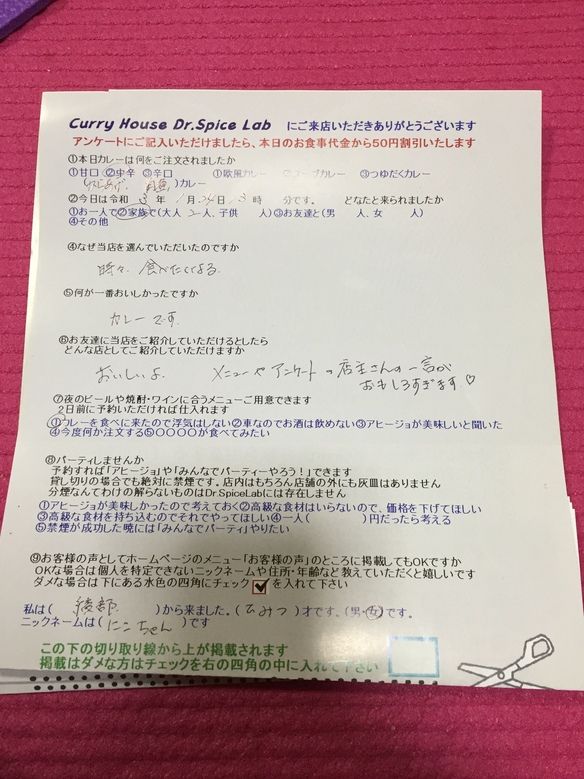 Curry House Dr.Spice Lab にご来店いただきありがとうございます
アンケートにご記入いただけましたら、本日のお食事代金から50円割引いたします
①本日カレーは何をご注文されましたか
①甘口 ②中辛 ③辛口 ①欧風カレー ②スープカレー ③つゆだくカレー
)カレー
②今日は令和 3 年 1月 24日 3時 分です。 どなたと来られましたか
①お一人で②家族で(大人 2人、子供 人)③お友達と(男 人、女 人)
④その他
④なぜ当店を選んでいただいたのですか
時々、食べたくなる
⑤何が一番おいしかったですか
カレーです
⑥お友達に当店をご紹介していただけるとしたら
どんな店としてご紹介していただけますか
おいしいよ メニューやアンケートの店主さんの一言が
おもしろすぎます♡
⑦夜のビールや焼酎・ワインに合うメニューご用意できます
2日前に予約いただければ仕入れます
①カレーを食べに来たので浮気はしない②車なのでお酒は飲めない③アヒージョが美味しいと聞いた
④今度何か注文する⑤〇〇〇〇が食べてみたい
⑧パーティしませんか
予約すれば「アヒージョ」や「みんなでパーティーやろう!」できます
貸し切りの場合でも絶対に禁煙です。店内はもちろん店舗の外にも灰皿はありません
分煙なんてわけの解らないものはDr.SpiceLabには存在しません
①アヒージョが美味しかったので考えておく②高級な食材はいらないので、価格を下げてほしい
③高級な食材を持ち込むのでそれでやってほしい④一人( )円だったら考える
⑤禁煙が成功した暁には「みんなでパーティ」やりたい
⑨お客様の声としてホームページのメニュー「お客様の声」のところに掲載してもOKですか
OKな場合は個人を特定できないニックネームや住所・年齢など教えていただくと嬉しいです
ダメな場合は下にある水色の四角にチェック を入れて下さい
私は( 綾部 )から来ました。(ひみつ)才です、(男・女)です。
ニックネームは( にこちゃん )です
この下の切り取り線から上が掲載されます
掲載はダメな方はチェックを右の四角の中に入れて下さい